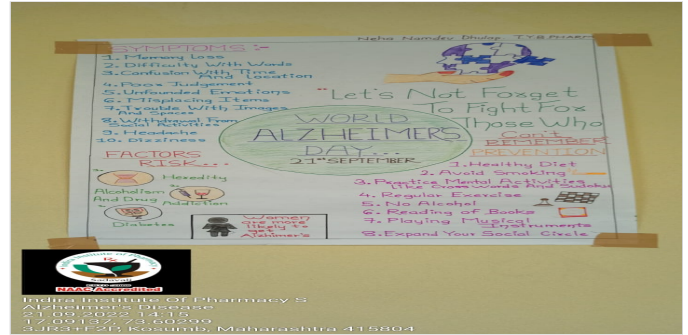 Neha Namdev Dhulap T.Y.B.PHARM
SYMPTOMS :-
1. Memory Loss
2. Difficulty With Words
3. Confusion With Time
And Location
4. Poor Judgement
5. Unfounded Emotions
6. Misplacing Items
7. Trouble With Images
And Spaces
8. Withdrawal From
Social Activities
9. Headache
10. Dizziness
FACTORS
RISK...
Heredity
Alcoholism
And Drug Addiction
Diabetes
Women
are more
likely to
get
Alzhimer's
WORLD
ALZHEIMER'S
DAY...
21st SEPTEMBER
"Let's Not Forget
To Fight For
Those Who
Can't
REMEMBER
PREVENTION
1. Healthy Diet
2. Avoid Smoking
3. Practice Mental Activities
Like Crosswords And Sudoku
4. Regular Exercise
5. No Alcohol
6. Reading of Books
7. Playing Musical
Instruments
8. Expand Your Social Circle
Indira Institute of Pharmacy
Sadavali
NAAC Accredited
Indira Institute Of Pharmacy S
Alzheimer's Disease
21.09.2022 14:15
17.09137, 73.60299
3JR3+F2F, Kosumb, Maharashtra 415804